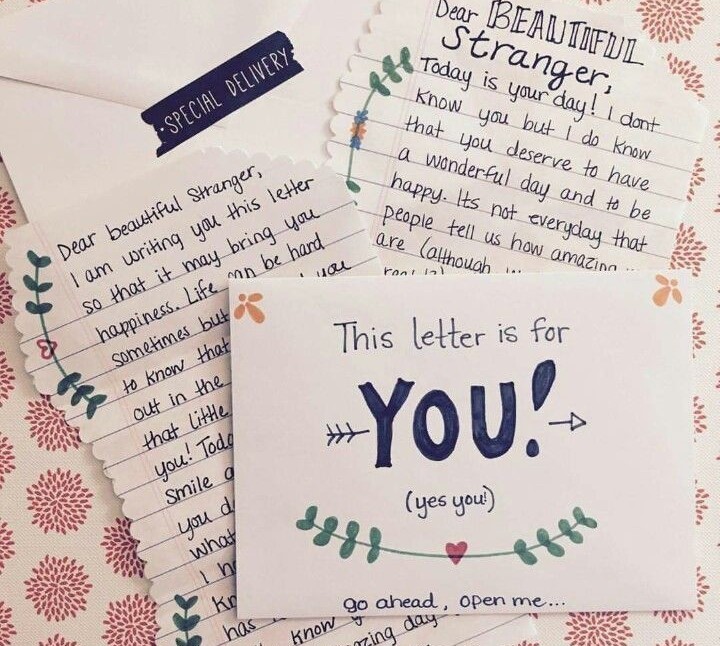 SPECIAL DELIVERY
Dear BEAUTIFUL
Stranger,
Today is your day! I dont
know you but I do know
that you deserve to have
a wonderful day and to be
happy. Its not everyday that
people tell us how amazing
are (although
Dear beautiful Stranger,
I am writing you this letter
so that it may bring you
happiness. Life can be hard
sometimes but you
to know that
out in the
that little
you! Toda
smile a
you d
what
I h
kn
has know
azing day
This letter is for
YOU!
(yes you!)
go ahead, open me...